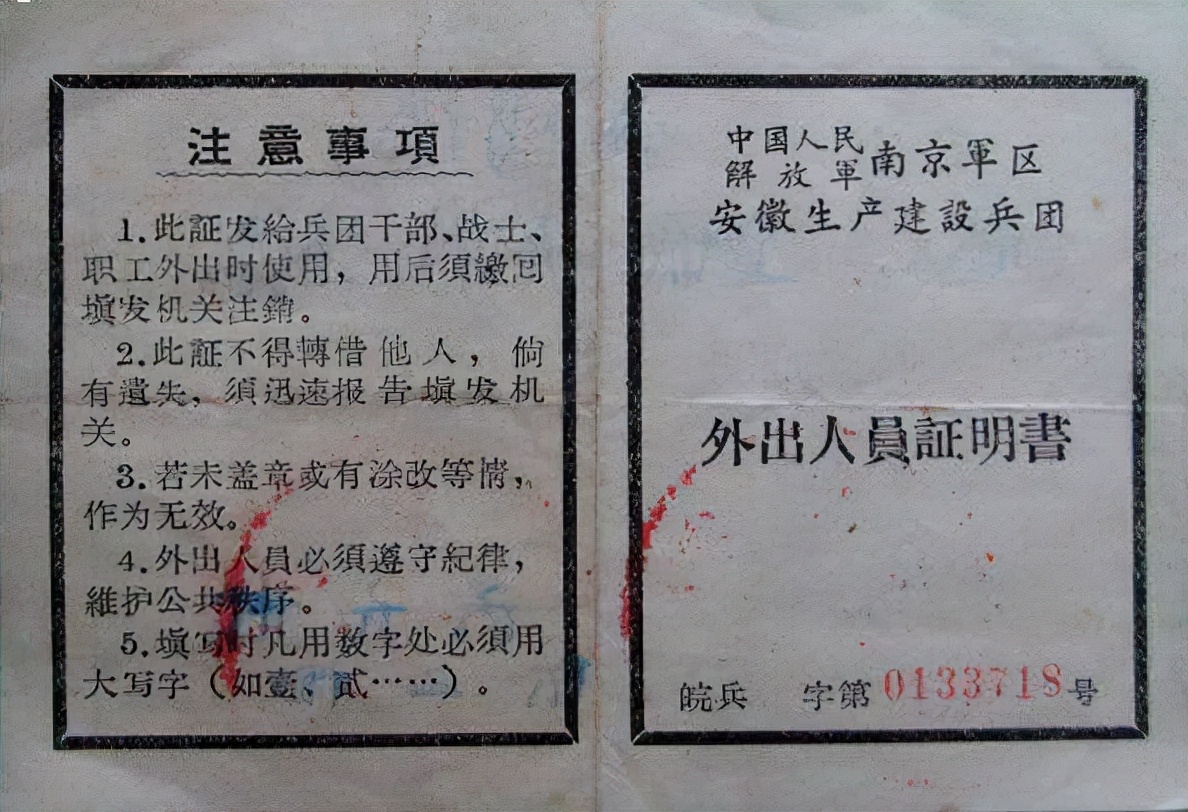 注意事項
1.此証发給兵团干部、战士、
职工外出时使用，用后須繳回
塡发机关注銷。
2.此証不得轉借他人，倘
有遺失，須迅速报告塡发机
关。
3.若未盖章或有涂改等情，
作为无效。
4.外出人員必須遵守紀律，
維护公共秩序。
5.塡写时凡用数字处必須用
大写字（如壹、贰……）。
中国人民
解放軍南京軍区
安徽生产建設兵团
外出人員証明書
皖兵 字第0133718号